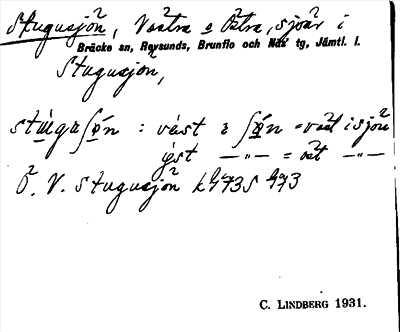 Stugusjön, Västra o Östra, sjöar i
Bräcke sn, Revsunds, Brunflo och Näs tg, Jämtl. l.
Stugusjön,
stùguʃø̀n : vást a ʃø̀n = väst i sjön
øst — „ — = öst — „ —
Ö. V. Stugusjön
C. LINDBERG 1931.